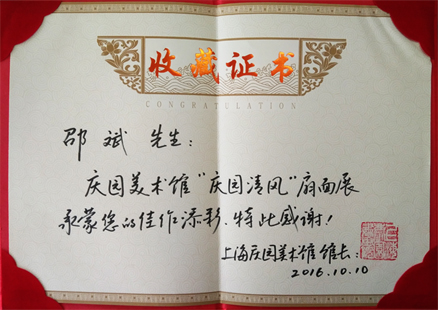 收藏证书
CONGRATULATION
邵斌 先生：
庆园美术馆“庆园清风”扇面展
承蒙您的佳作添彩、特此感谢！
上海庆园美术馆 馆长：
2016.10.10